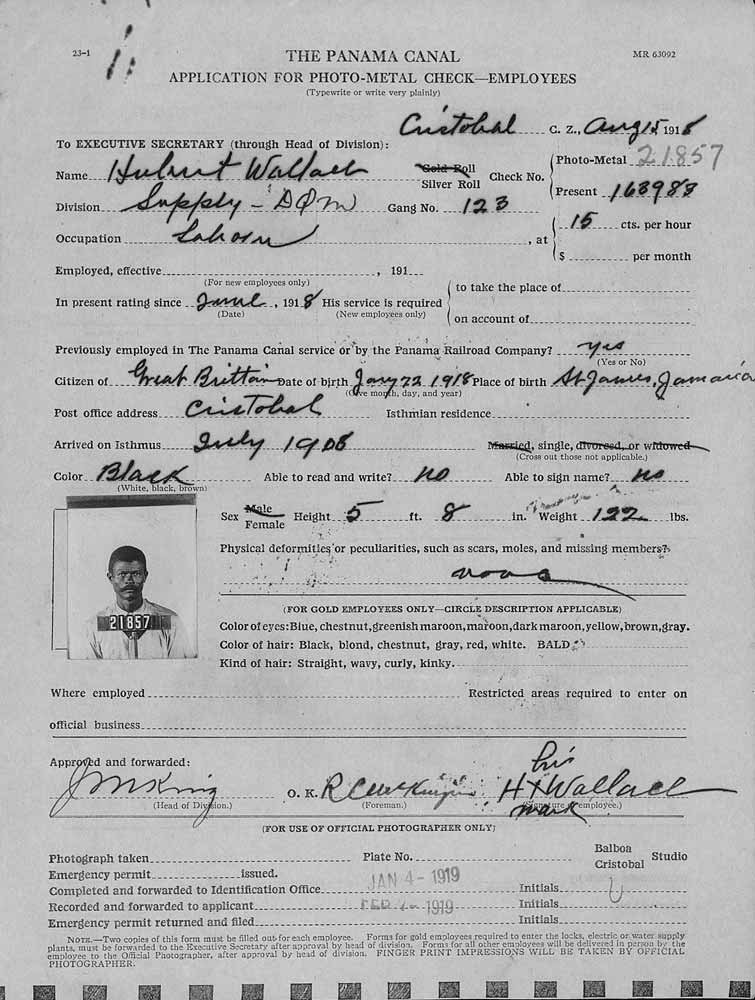 23-1
THE PANAMA CANAL
MR 63092
APPLICATION FOR PHOTO-METAL CHECK—EMPLOYEES
(Typewrite or write very plainly)
Cristobal C. Z., Aug 15 1918
To EXECUTIVE SECRETARY (through Head of Division):
Name Hubert Wallace Gold Roll Silver Roll Check No. Photo-Metal 21857 Present 163988
Division Supply - DQM Gang No. 123
Occupation Laborer, at 15 cts. per hour
$ per month
Employed, effective , 191
(For new employees only)
In present rating since June, 1918 His service is required to take the place of
(Date) (New employees only)
on account of
Previously employed in The Panama Canal service or by the Panama Railroad Company? yes
(Yes or No)
Citizen of Great Brittain Date of birth Jany 22 1918 Place of birth St James, Jamaica
(Give month, day, and year)
Post office address Cristobal Isthmian residence
Arrived on Isthmus July 1908 Married, single, divorced, or widowed
(Cross out those not applicable.)
Color Black Able to read and write? no Able to sign name? no
(White, black, brown)
Sex Male Female Height 5 ft. 8 in. Weight 122 lbs.
Physical deformities or peculiarities, such as scars, moles, and missing members?
none
21857
(FOR GOLD EMPLOYEES ONLY—CIRCLE DESCRIPTION APPLICABLE)
Color of eyes: Blue, chestnut, greenish maroon, maroon, dark maroon, yellow, brown, gray.
Color of hair: Black, blond, chestnut, gray, red, white. BALD
Kind of hair: Straight, wavy, curly, kinky.
Where employed Restricted areas required to enter on
official business
Approved and forwarded:
his
J M King O. K. H X Wallace
(Head of Division.) (Foreman.) (Signature of employee.)
mark
(FOR USE OF OFFICIAL PHOTOGRAPHER ONLY)
Photograph taken Plate No. Balboa Cristobal Studio
Emergency permit issued.
Completed and forwarded to Identification Office JAN 4 - 1919 Initials
Recorded and forwarded to applicant FEB 1919 Initials
Emergency permit returned and filed Initials
NOTE.—Two copies of this form must be filled out for each employee. Forms for gold employees required to enter the locks, electric or water supply
plants, must be forwarded to the Executive Secretary after approval by head of division. Forms for all other employees will be delivered in person by the
employee to the Official Photographer, after approval by head of division. FINGER PRINT IMPRESSIONS WILL BE TAKEN BY OFFICIAL
PHOTOGRAPHER.